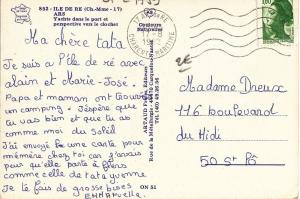 852 - ILE DE RE (Ch.-Mme - 17)
ARS
Yachts dans le port et
perspective vers le clocher
Ma chère tata
Je suis à l'île de ré avec
alain et Marie-José.
Papa et maman ont trouvé
un camping. J'espère que
tu vas bien et que tu as
comme moi du soleil
J'ai envoyé une carte pour
mémère chez toi car j'avais
peur qu'elle parte à
comme celle de tataquenne
Je te fais de grosses bises
Emmanuelle.
ON 51
Couleurs
Naturelles
ARTAUD Père et Fils, Editeurs
Rue de la Métallurgie - 44470 Carquefou-Nantes
2€
Madame Dreux
116 boulevard
du Midi
50 St
1,80